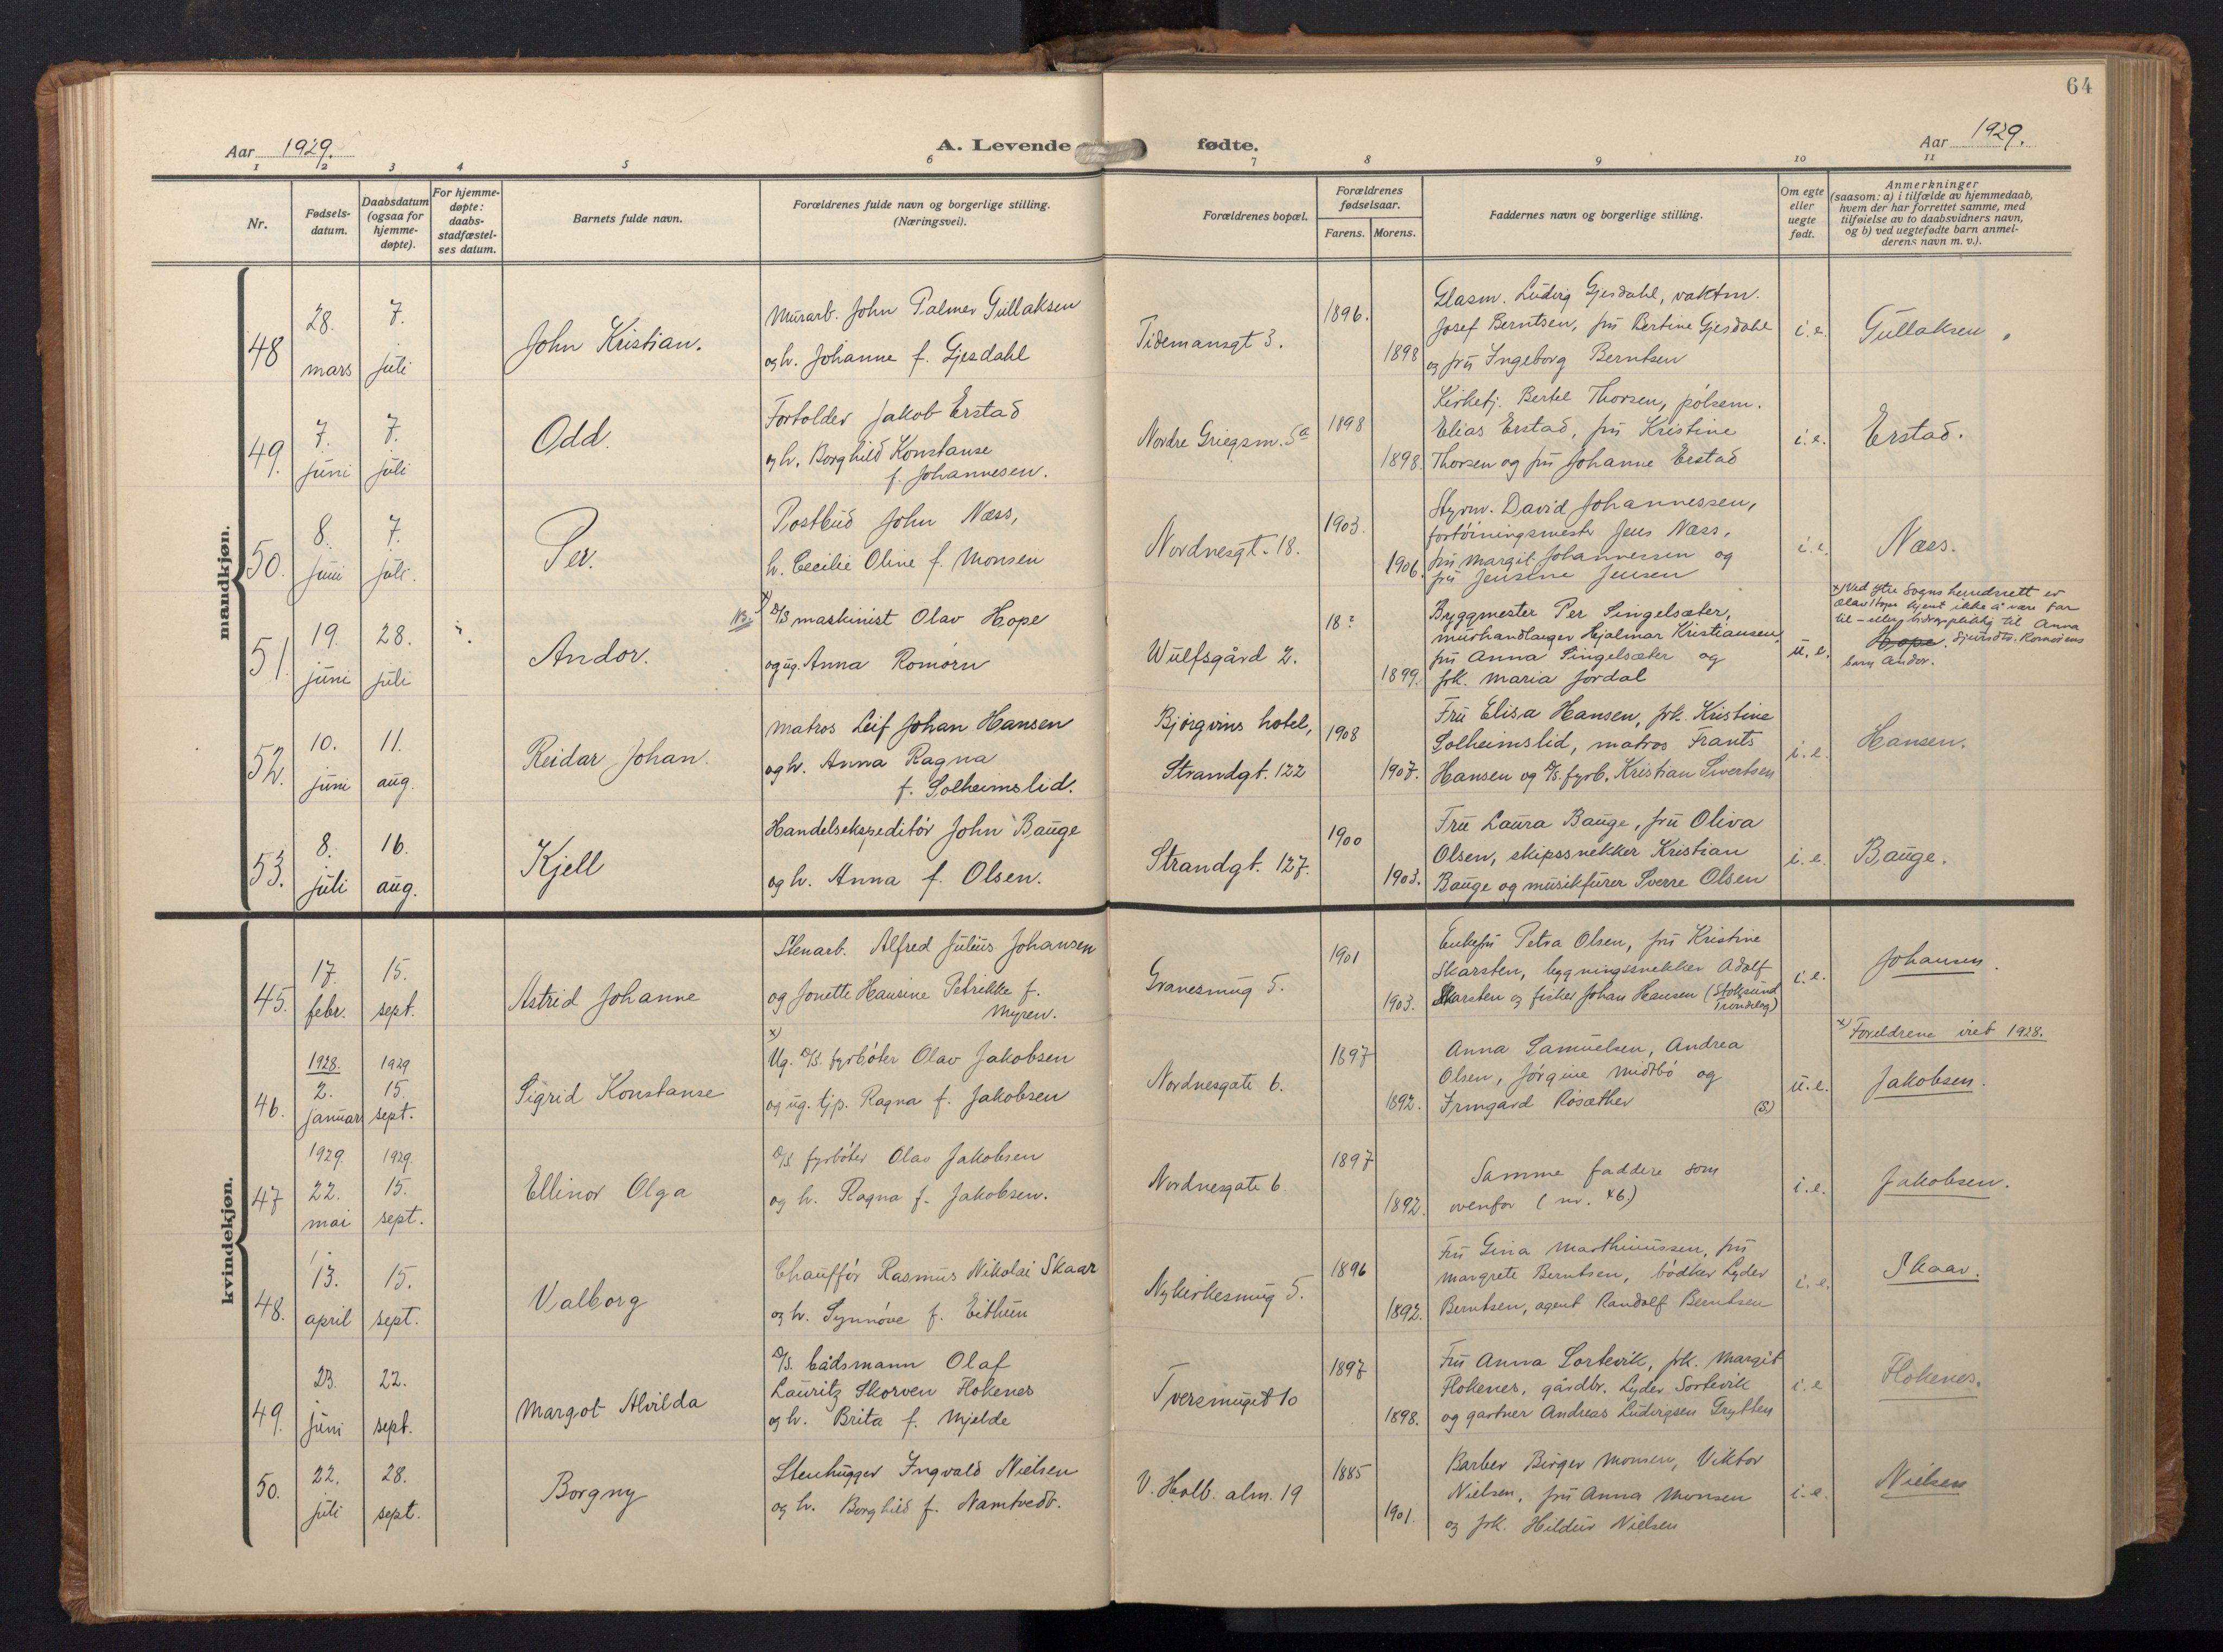 64
Aar 1929.
A. Levende
fødte.
Aar 1929.
1 2 3 4 5 6 7 8 9 10 11
Nr.
Fødsels-
datum.
Daabsdatum
(ogsaa for
hjemme-
døpte).
For hjemme-
døpte:
daabs-
stadfæstel-
ses datum.
Barnets fulde navn.
Forældrenes fulde navn og borgerlige stilling.
(Næringsvei).
Forældrenes bopæl.
Forældrenes
fødselsaar.
Farens. Morens.
Faddernes navn og borgerlige stilling.
Om egte
eller
uegte
født.
Anmerkninger
(saasom: a) i tilfælde av hjemmedaab,
hvem der har forrettet samme, med
tilføielse av to daabsvidners navn,
og b) ved uegtefødte barn anmel-
derens navn m. v.).
mandkjøn.
48
28.
mars
7.
juli
John Kristian.
Murarb. John Palmer Gullaksen
og h. Johanne f. Gjesdahl
Tidemansgt 3.
1896.
1898
Glasm. Ludvig Gjesdahl, vaktm.
Josef Berntsen, fru Bertine Gjesdahl
og fru Ingeborg Berntsen
i. e.
Gullaksen
49.
7.
juni
7.
juli
Odd.
Forholder Jakob Erstad
og h. Borghild Konstanse
f. Johannesen.
Nordre Griegsm. 5a
1898
1898.
Kirketj. Bertel Thorsen, pølsem.
Elias Erstad, fru Kristine
Thorsen og fru Johanne Erstad
i. e.
Erstad.
50.
8.
juni
7.
juli.
Per.
Postbud John Næss,
h. Cecilie Oline f. Monsen
Nordnesgt. 18.
1903.
1906.
Styrm. David Johannessen,
fortøiningsmester Jens Næss,
fru Margit Johannessen og
fru Jensine Jensen
i. e.
Næss.
51.
19.
juni
28.
juli
Andor.
NB. x) D/S maskinist Olav Hope
og ug. Anna Romørn
Wulfsgård 2.
18?
1899.
Byggmester Per Singelsæter,
murhandlanger Hjalmar Kristiansen,
fru Anna Singelsæter og
frk. Maria Jordal
u. e.
x) Ved Ytre Sogns herredsrett er
Olav Hope kjent ikke å være far
til – eller bidragspliktig til Anna
Hope. Djursdtr. Romørens
barn Andor.
52.
10.
juni
11.
aug.
Reidar Johan.
Matros Leif Johan Hansen
og h. Anna Ragna
f. Solheimslid.
Bjørgvins hotel,
Strandgt. 122
1908
1907.
Fru Elisa Hansen, frk. Kristine
Solheimslid, matros Frants
Hansen og D/S. fyrb. Kristian Sivertsen
i. e.
Hansen.
53.
8.
juli
16.
aug.
Kjell
Handelsekspeditør John Bauge
og h. Anna f. Olsen.
Strandgt. 127.
1900
1903.
Fru Laura Bauge, fru Oliva
Olsen, skipssnekker Kristian
Bauge og musikfurer Sverre Olsen
i. e.
Bauge.
kvindekjøn.
45.
17.
febr.
15.
sept.
Astrid Johanne
Stenarb. Alfred Julius Johansen
og Jonette Hansine Petrikke f.
Myren.
Granesmug 5.
1901
1903.
Enkefru Petra Olsen, fru Kristine
Skarsten, bygningssnekker Adolf
Skarsten og fisker Johan Hansen (Stoksund
Trøndelag)
i. e.
Johansen.
46.
1928.
2.
januar
1929
15.
sept.
Sigrid Konstanse
x)
Ug. D/S. fyrbøter Olav Jakobsen
og ug. tjp. Ragna f. Jakobsen
Nordnesgate 6.
1897
1892.
Anna Samuelsen, Andrea
Olsen, Jørgine Midtbø og
Irmgard Rosæther (S.)
u. e.
x) Foreldrene viet 1928.
Jakobsen.
47
1929.
22.
mai
1929.
15.
sept.
Ellinor Olga
D/S fyrbøter Olav Jakobsen
og h. Ragna f. Jakobsen.
Nordnesgate 6.
1897
1892.
Samme faddere som
ovenfor (nr. 46.)
i. e.
Jakobsen.
48.
13.
april
15.
sept.
Valborg
Chauffør Rasmus Nikolai Skaar
og h. Synnøve f. Eithun
Nykirkesmug 5.
1896
1892.
Fru Gina Marthinussen, fru
Margrete Berntsen, bødker Lyder
Berntsen, agent Randolf Berntsen
i. e.
Skaar.
49.
23.
juni
22.
sept.
Margot Alvilda
D/S. båtsmann Olaf
Lauritz Skorven Flokenes
og h. Brita f. Mjelde
Tversmuget 10
1897
1898.
Fru Anna Sortevik, frk. Margit
Flokenes, gårdbr. Lyder Sortevik
og gartner Andreas Ludvigsen Grytten
i. e
Flokenes.
50.
22.
juli
28.
sept.
Borgny
Stenhugger Ingvald Nielsen
og h. Borghild f. Namtvedt.
V. Holb. alm. 19
1885
1901.
Barber Birger Monsen, Viktor
Nielsen, fru Anna Monsen
og frk. Hildur Nielsen
i. e.
Nielsen